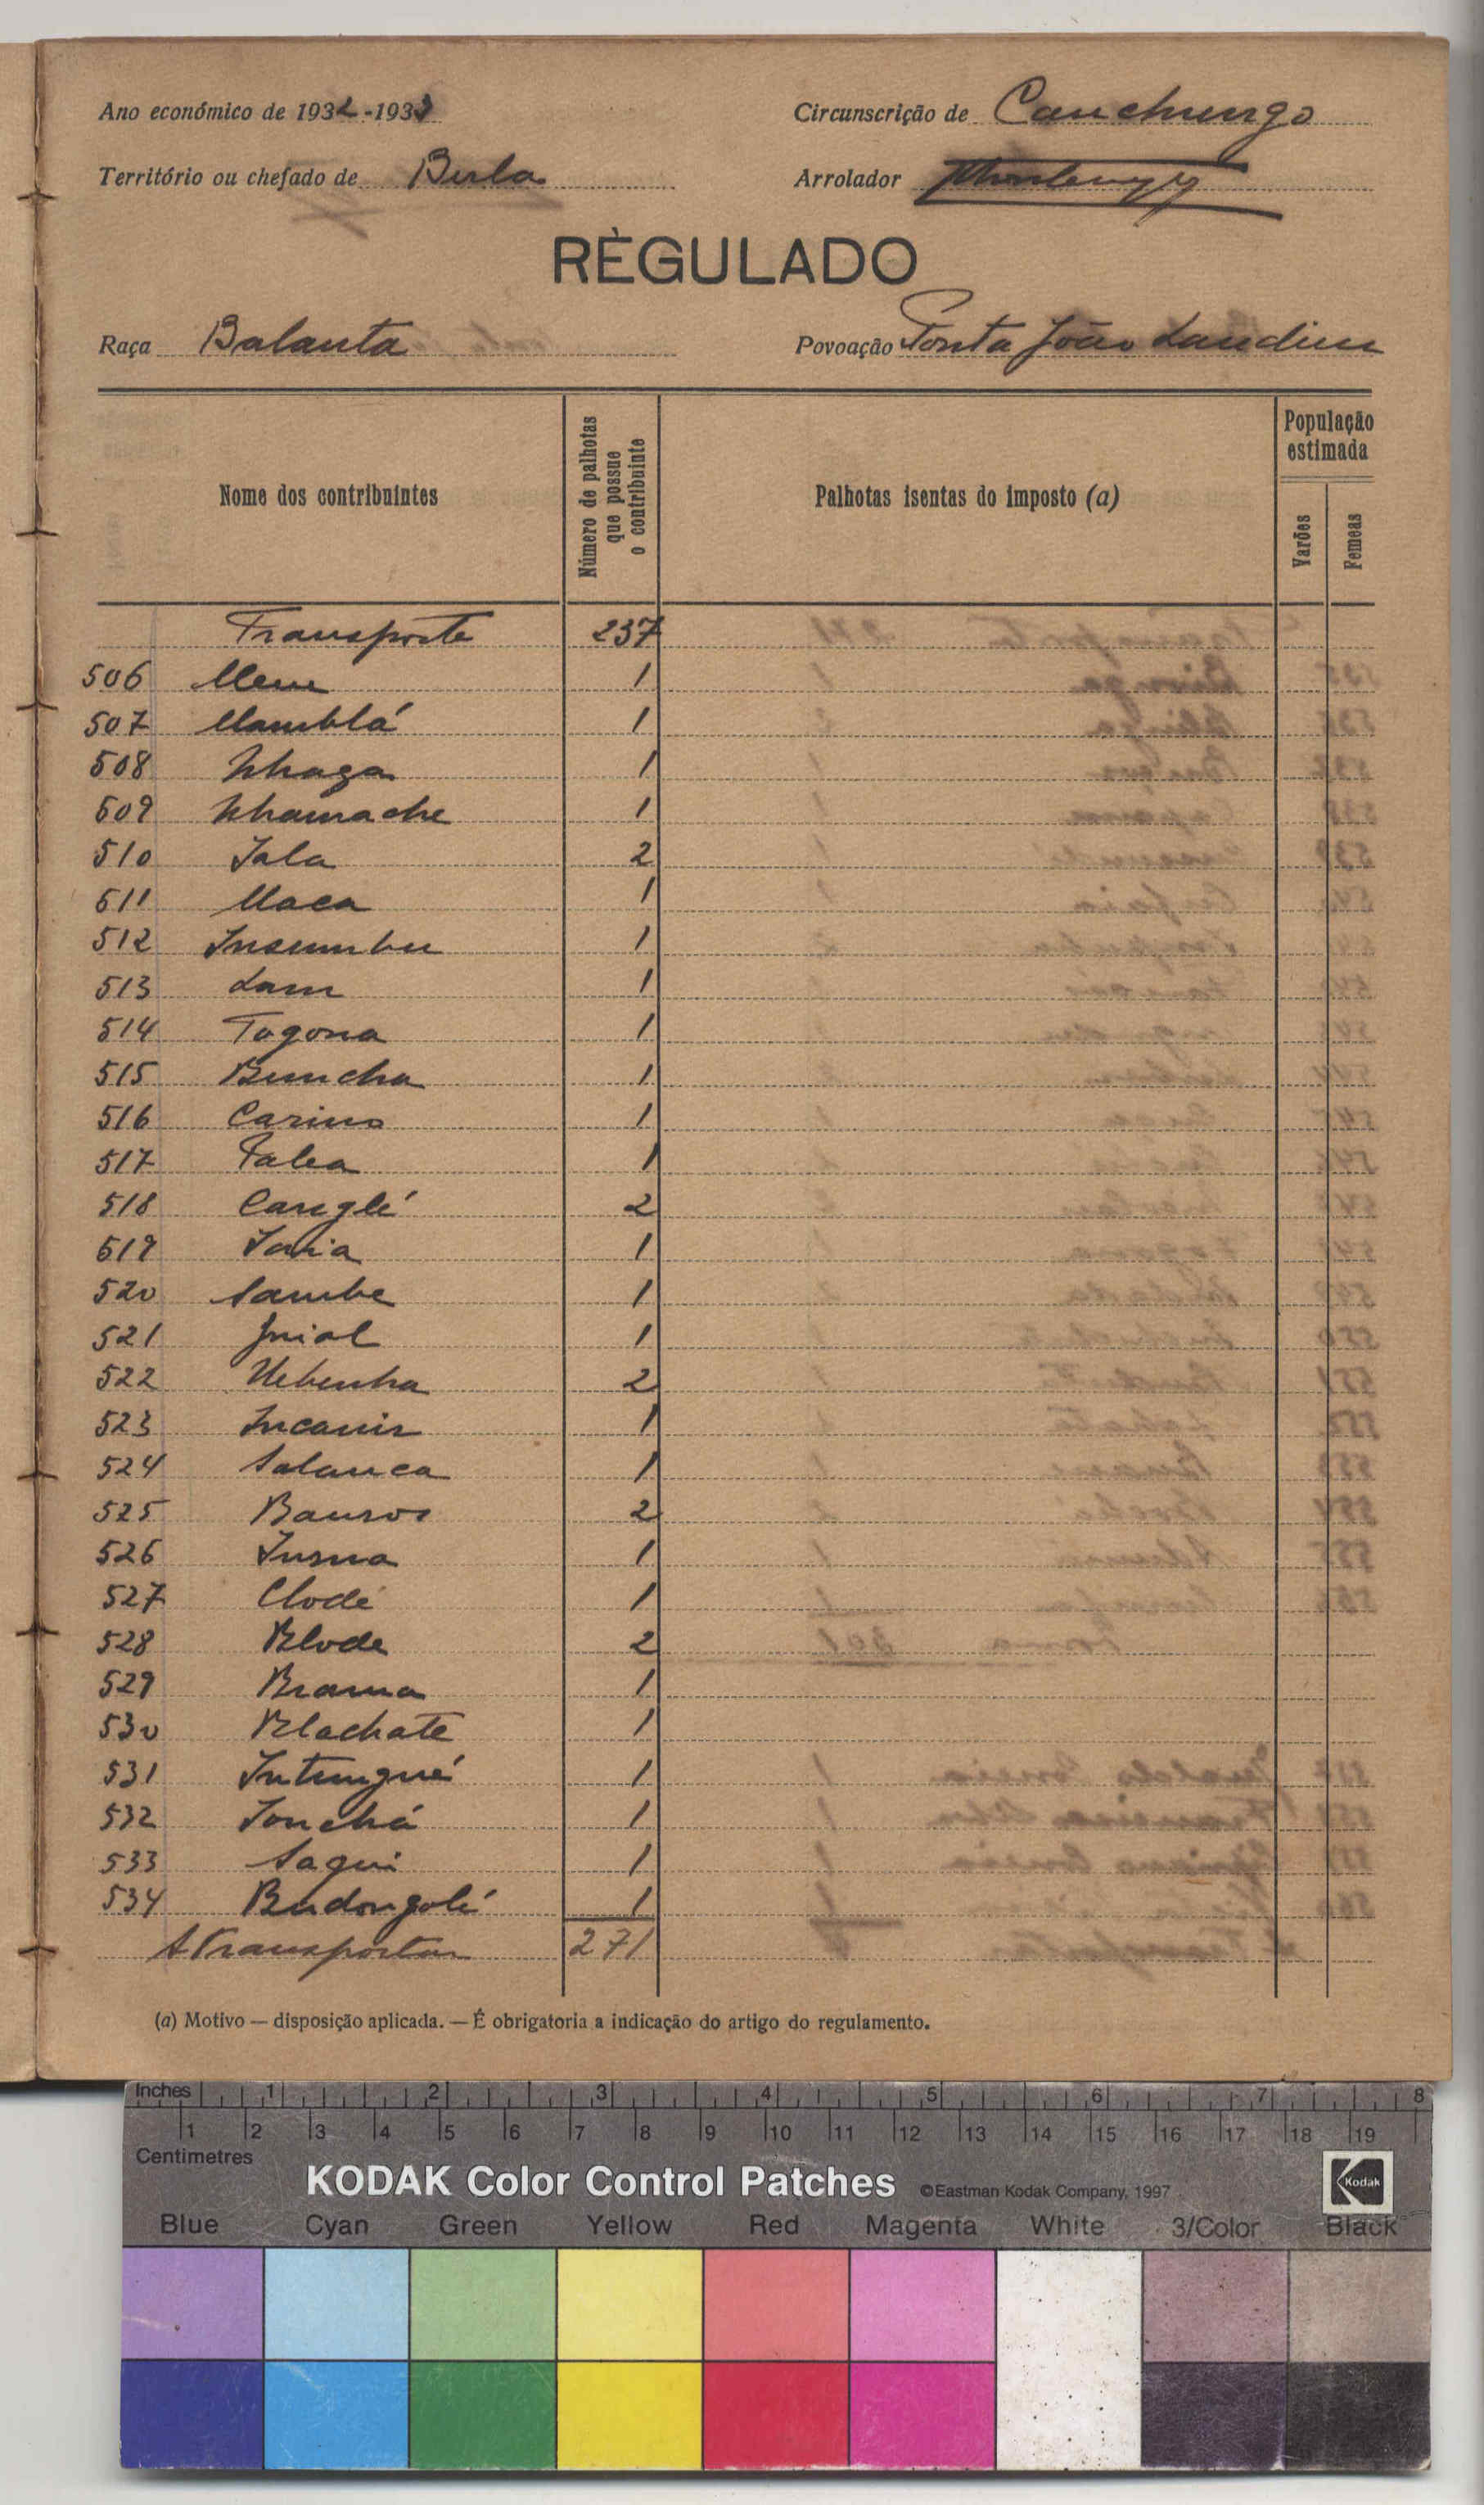 Ano económico de 1932-1933
Circunscrição de Canchungo
Território ou chefado de Bula
Arrolador
RÈGULADO
Raça Balanta
Povoação Ponta João Landim
Nome dos contribuintes
Número de palhotas que possue o contribuinte
Palhotas isentas do imposto (a)
População estimada
Varões
Femeas
Transporte 237
506 1
507 Mamblá 1
508 Nhaga 1
509 Nhamache 1
510 Jala 2
511 Maca 1
512 Insumbu 1
513 Lam 1
514 Togona 1
515 Buncha 1
516 Carino 1
517 Falea 1
518 Canglé 2
519 1
520 Sambe 1
521 Inial 1
522 2
523 1
524 Salanca 1
525 2
526 Insna 1
527 Clodé 1
528 Blode 2
529 Brama 1
530 Blachate 1
531 Intungué 1
532 Jonchá 1
533 Saqui 1
534 Budongolé 1
A transportar 271
(a) Motivo — disposição aplicada. — É obrigatoria a indicação do artigo do regulamento.
Inches 1 2 3 4 5 6 7 8
1 2 3 4 5 6 7 8 9 10 11 12 13 14 15 16 17 18 19
Centimetres
KODAK Color Control Patches ©Eastman Kodak Company, 1997 Kodak
Blue Cyan Green Yellow Red Magenta White 3/Color Black